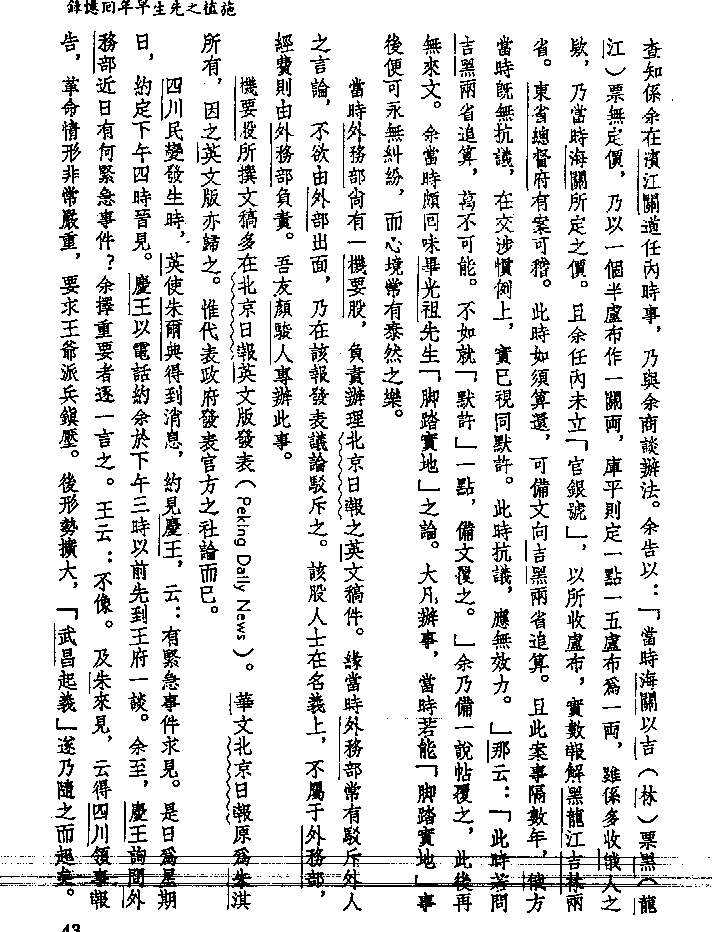 施植之先生早年回憶錄
查知係余在濱江關道任內時事，乃與余商談辦法。余告以：「當時海關以吉（林）票黑（龍
江）票無定價，乃以一個半盧布作一關兩，庫平則定一點一五盧布爲一兩，雖係多收俄人之
款，乃當時海關所定之價。且余任內未立「官銀號」，以所收盧布，實數報解黑龍江吉林兩
省。東省總督府有案可稽。此時如須算還，可備文向吉黑兩省追算。且此案事隔數年，俄方
當時旣無抗議，在交涉慣例上，實已視同默許。此時抗議，應無效力。」那云：「此時若問
吉黑兩省追算，萬不可能。不如就「默許」一點，備文覆之。」余乃備一說帖覆之，此後再
無來文。余當時頗回味畢光祖先生「脚踏實地」之論。大凡辦事，當時若能「脚踏實地」事
後便可永無糾紛，而心境常有泰然之樂。
當時外務部尙有一機要股，負責辦理北京日報之英文稿件。緣當時外務部常有駁斥外人
之言論，不欲由外部出面，乃在該報發表議論駁斥之。該股人士在名義上，不屬于外務部，
經費則由外務部負責。吾友顏駿人專辦此事。
機要股所撰文稿多在北京日報英文版發表（Peking Daily News）。華文北京日報原爲朱淇
所有，因之英文版亦歸之。惟代表政府發表官方之社論而已。
四川民變發生時，英使朱爾典得到消息，約見慶王，云：有緊急事件求見。是日爲星期
日，約定下午四時晉見。慶王以電話約余於下午三時以前先到王府一談。余至，慶王詢問外
務部近日有何緊急事件？余擇重要者逐一言之。王云：不像。及朱來見，云得四川領事報
告，革命情形非常嚴重，要求王爺派兵鎭壓。後形勢擴大，「武昌起義」遂乃隨之而起矣。
43